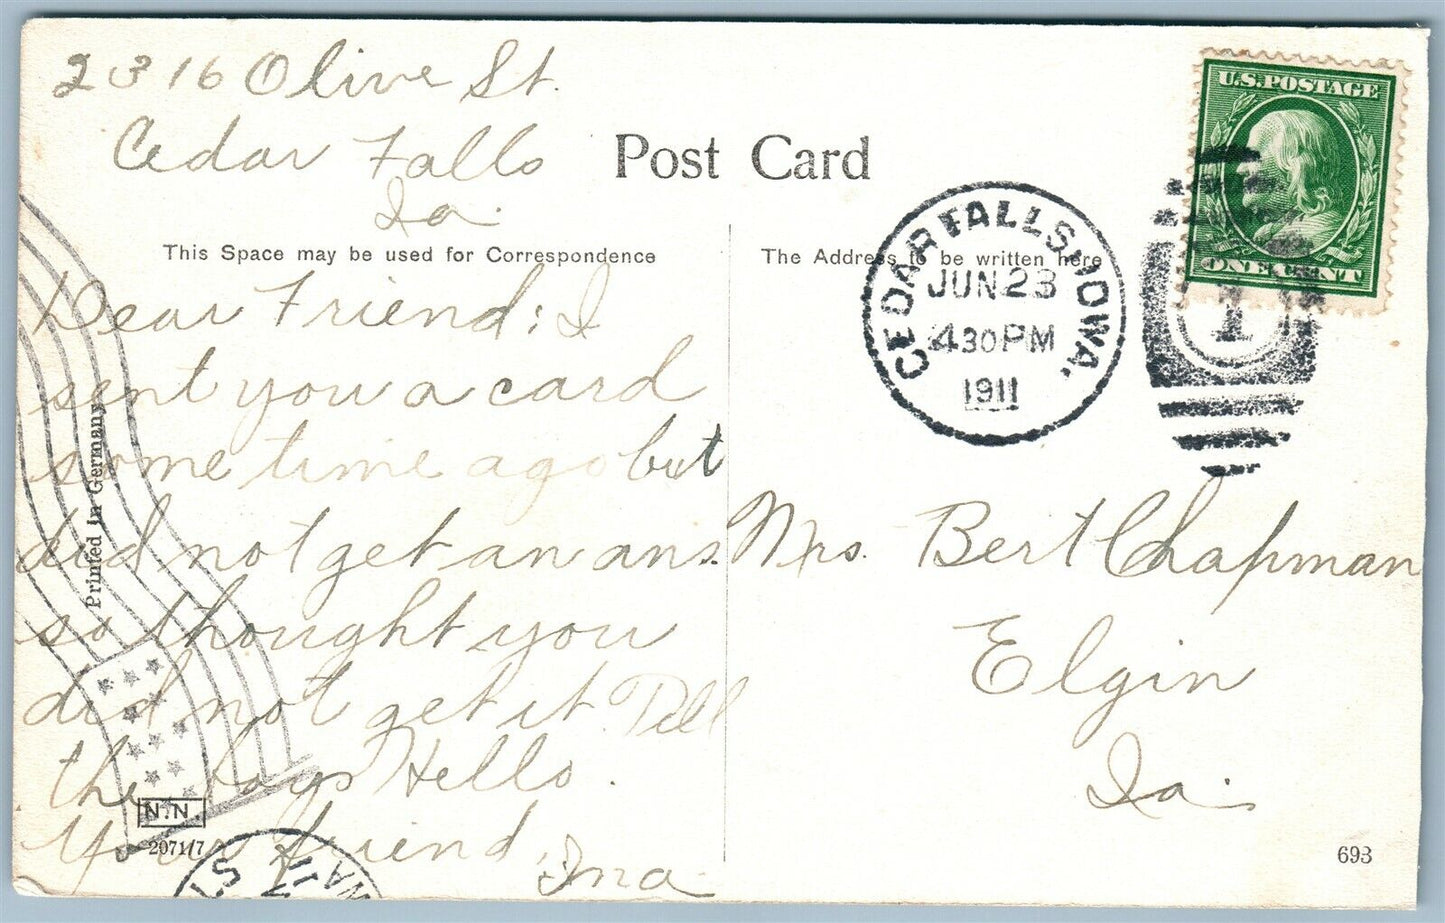 2316 Olive St.
Cedar Falls
Ia.
Post Card
This Space may be used for Correspondence
The Address to be written here
U.S. POSTAGE
ONE CENT
CEDAR FALLS, IOWA.
JUN 23
430 PM
1911
1
Dear Friend: I
sent you a card
some time ago but
did not get an ans.
so thought you
did not get it Tell
the boys Hello.
Your friend,
Ina
Mrs. Bert Chapman
Elgin
Ia.
Printed in Germany
N.N.
2071/7
693